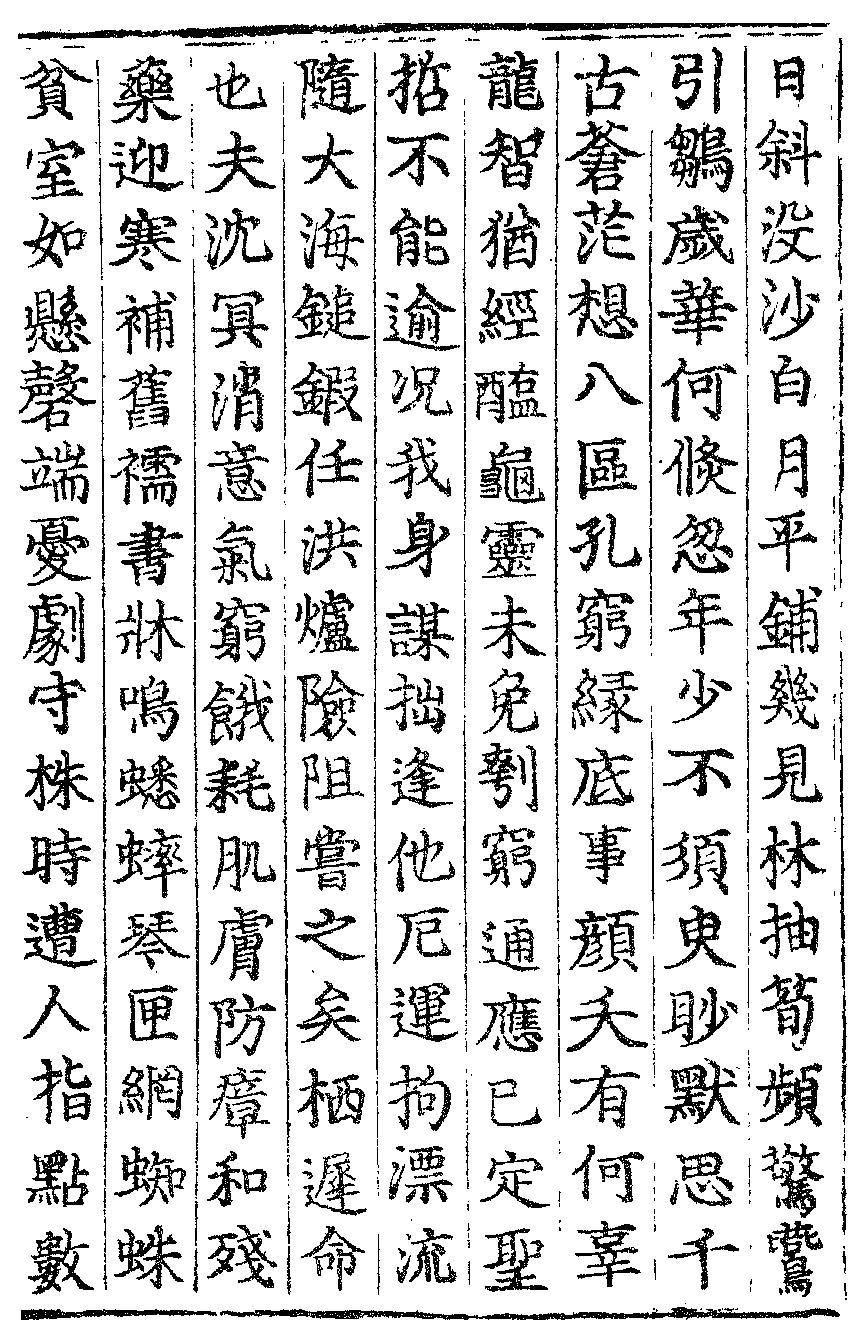 日斜没沙白月平鋪幾見林抽筍頻驚鷰
引鶵歳華何倐忽年少不須臾眇默思千
古蒼茫想八區孔窮縁底事顔夭有何辜
龍智猶經醢龜靈未免刳窮通應已定聖
哲不能逾况我身謀拙逢他厄運拘漂流
隨大海鎚鍛任洪爐險阻嘗之矣栖遲命
也夫沈冥消意氣窮餓耗肌膚防瘴和殘
藥迎寒補舊襦書牀鳴蟋蟀琴匣網蜘蛛
貧室如懸磬端憂劇守株時遭人指點數